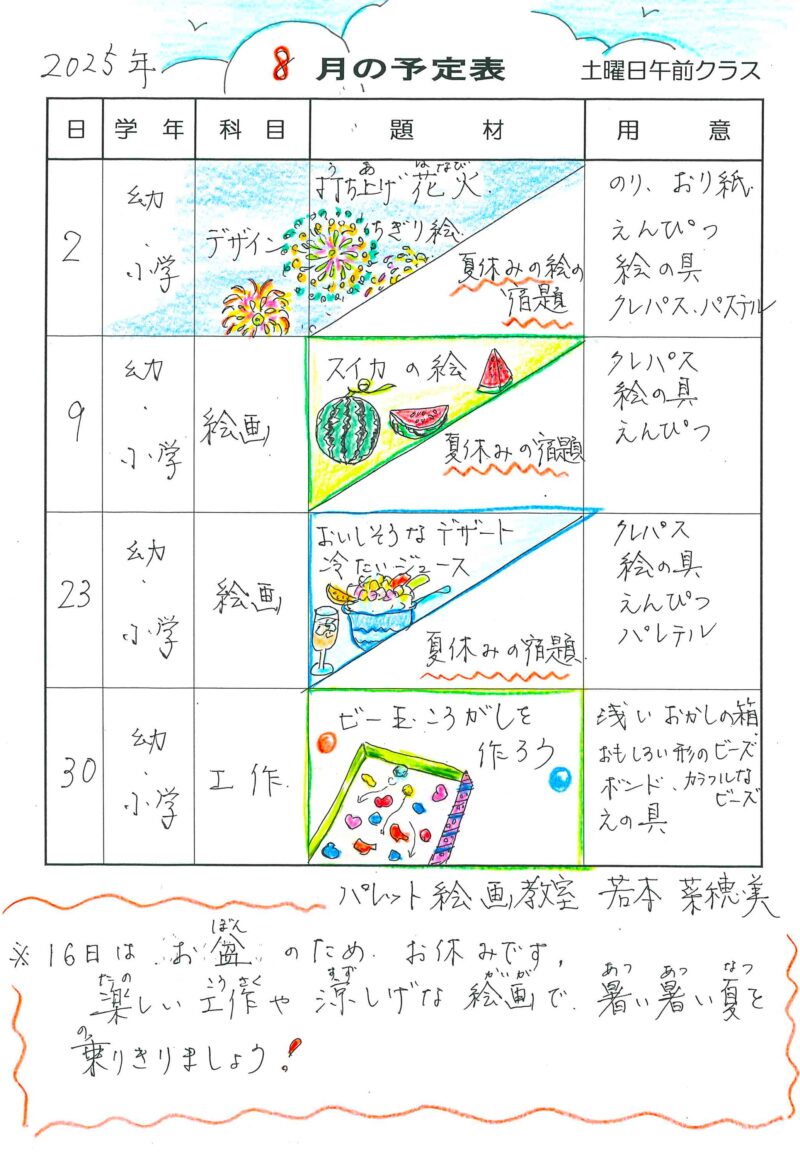 2025年 8月の予定表 土曜日午前クラス
日 学年 科目 題材 用意
2
幼・小学
デザイン
うあ はなび
打ち上げ花火
ちぎり絵
夏休みの絵の
宿題
のり、おり紙
えんぴつ
絵の具
クレパス、パステル
9
幼・小学
絵画
スイカの絵
夏休みの宿題
クレパス
絵の具
えんぴつ
23
幼・小学
絵画
おいしそうなデザート
冷たいジュース
夏休みの宿題
クレパス
絵の具
えんぴつ
30
幼・小学
工作
ビー玉ころがしを
作ろう
浅いおかしの箱
おもしろい形のビーズ
ボンド、カラフルな
ビーズ
えの具
パレット絵画教室 若本 菜穂美
ぼん
※16日は、お盆のため、お休みです。
たの こうさく すず かいが あつ あつ なつ
楽しい工作や涼しげな絵画で、暑い暑い夏を
の
乗りきりましょう!